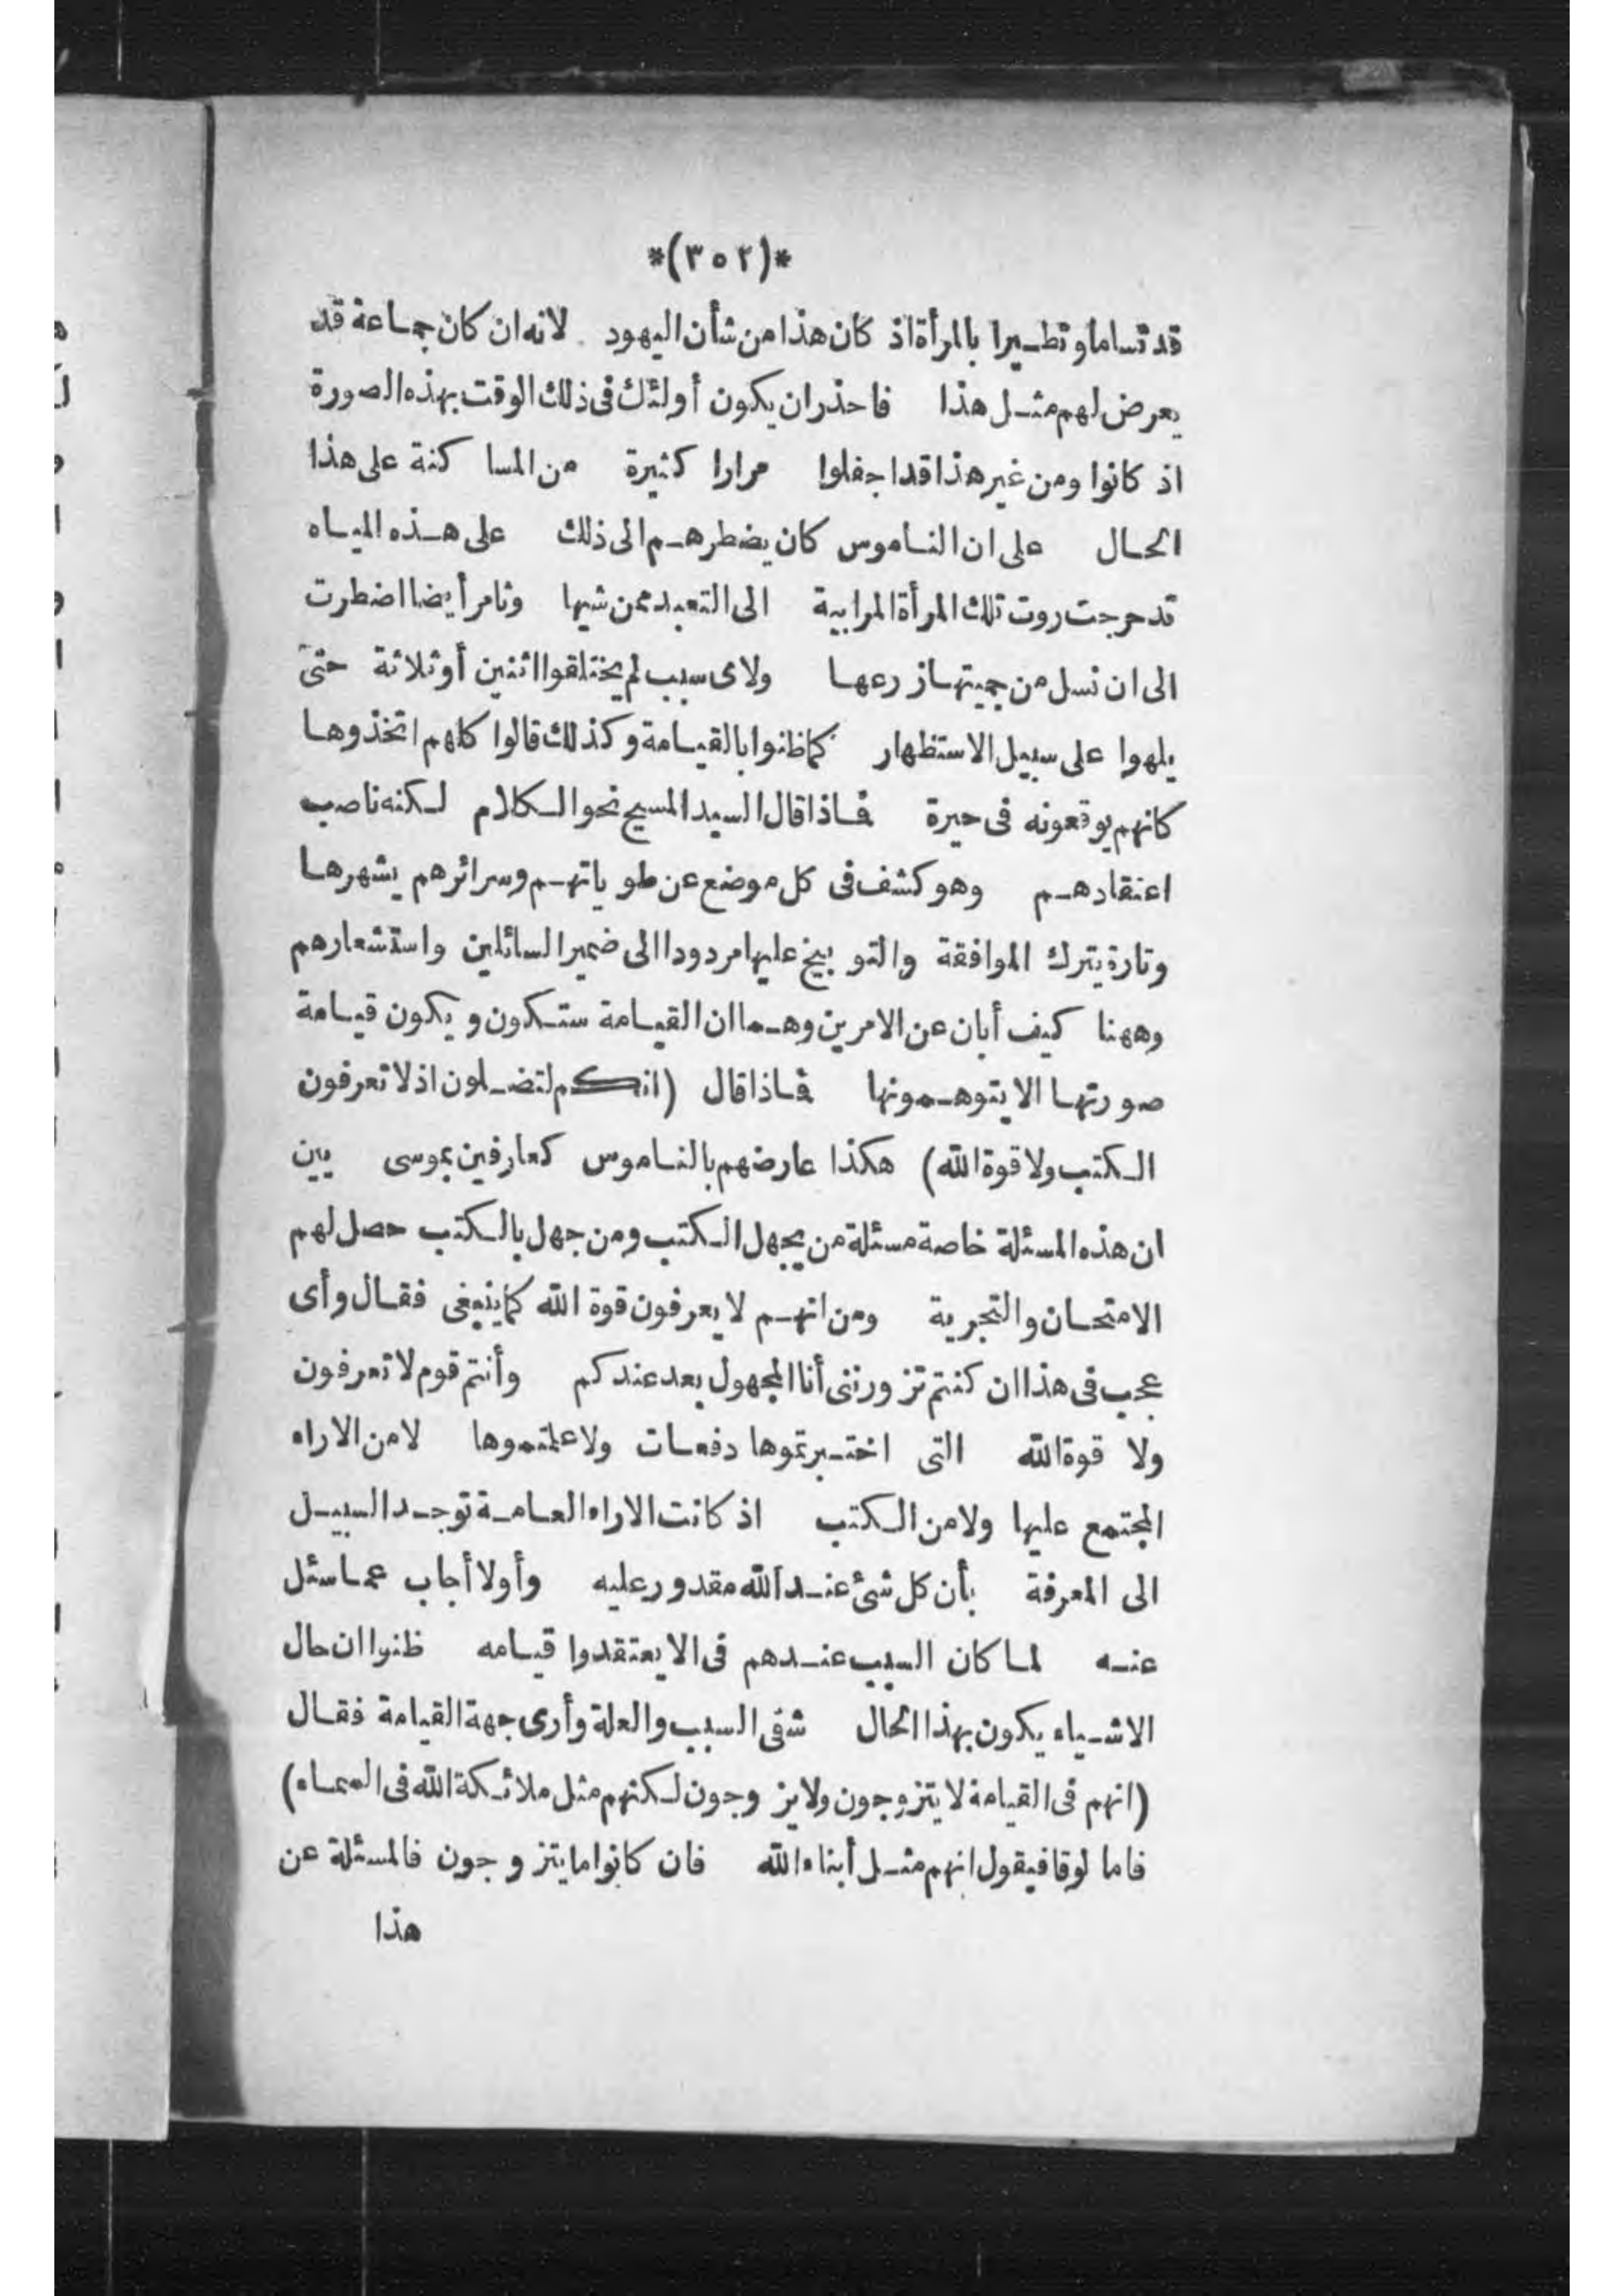 *(٣٥٢)*
قد تساما وتطيرا بالمرأة اذ كان هذا من شأن اليهود لانه ان كان جماعة قد
يعرض لهم مثل هذا فاحذر ان يكون أولئك فى ذلك الوقت بهذه الصورة
اذ كانوا ومن غير هذا قد اجفلوا مرارا كثيرة من المساكنة على هذا
الحال على ان الناموس كان يضطرهم الى ذلك على هذه المياه
قد حرجت روت تلك المرأة المرابية الى التعبد ممن شيها وثامر أيضا اضطرت
الى ان نسل من جيتها زرعها ولاى سبب لم يختلقوا اثنين أو ثلاثة حتى
يلهوا على سبيل الاستظهار كما ظنوا بالقيامة وكذلك قالوا كلهم اتخذوها
كانهم يوقعونه فى حيرة فماذا قال السيد المسيح نحو الكلام لكنه ناصب
اعتقادهم وهو كشف فى كل موضع عن طوياتهم وسرائرهم يشهرها
وتارة يترك الموافقة والتوبيخ عليها مردودا الى ضمير السائلين واستشعارهم
وههنا كيف أبان عن الامرين وهما ان القيامة ستكون ويكون قيامة
صورتها الا يتوهمونها فماذا قال (انكم لتضلون اذ لا تعرفون
الكتب ولا قوة الله) هكذا عارضهم بالناموس كعارفين بموسى بين
ان هذه المسئلة خاصة مسئلة من يجهل الكتب ومن جهل بالكتب حصل لهم
الامتحان والتجربة ومن انهم لا يعرفون قوة الله كما ينبغى فقال وأى
عجب فى هذا ان كنتم تزورننى أنا المجهول بعد عندكم وأنتم قوم لا تعرفون
ولا قوة الله التى اختبرتموها دفعات ولا علمتموها لا من الاراء
المجتمع عليها ولا من الكتب اذ كانت الاراء العامة توجد السبيل
الى المعرفة بأن كل شئ عند الله مقدور عليه وأولا أجاب عما سئل
عنه لما كان السبب عندهم فى الا يعتقدوا قيامه ظنوا ان حال
الاشياء يكون بهذا الحال شفى السبب والعلة وأرى جهة القيامة فقال
(انهم فى القيامة لا يتزوجون ولا يزوجون لكنهم مثل ملائكة الله فى السماء)
فاما لوقا فيقول انهم مثل أبناء الله فان كانوا ما يتزوجون فالمسئلة عن
هذا